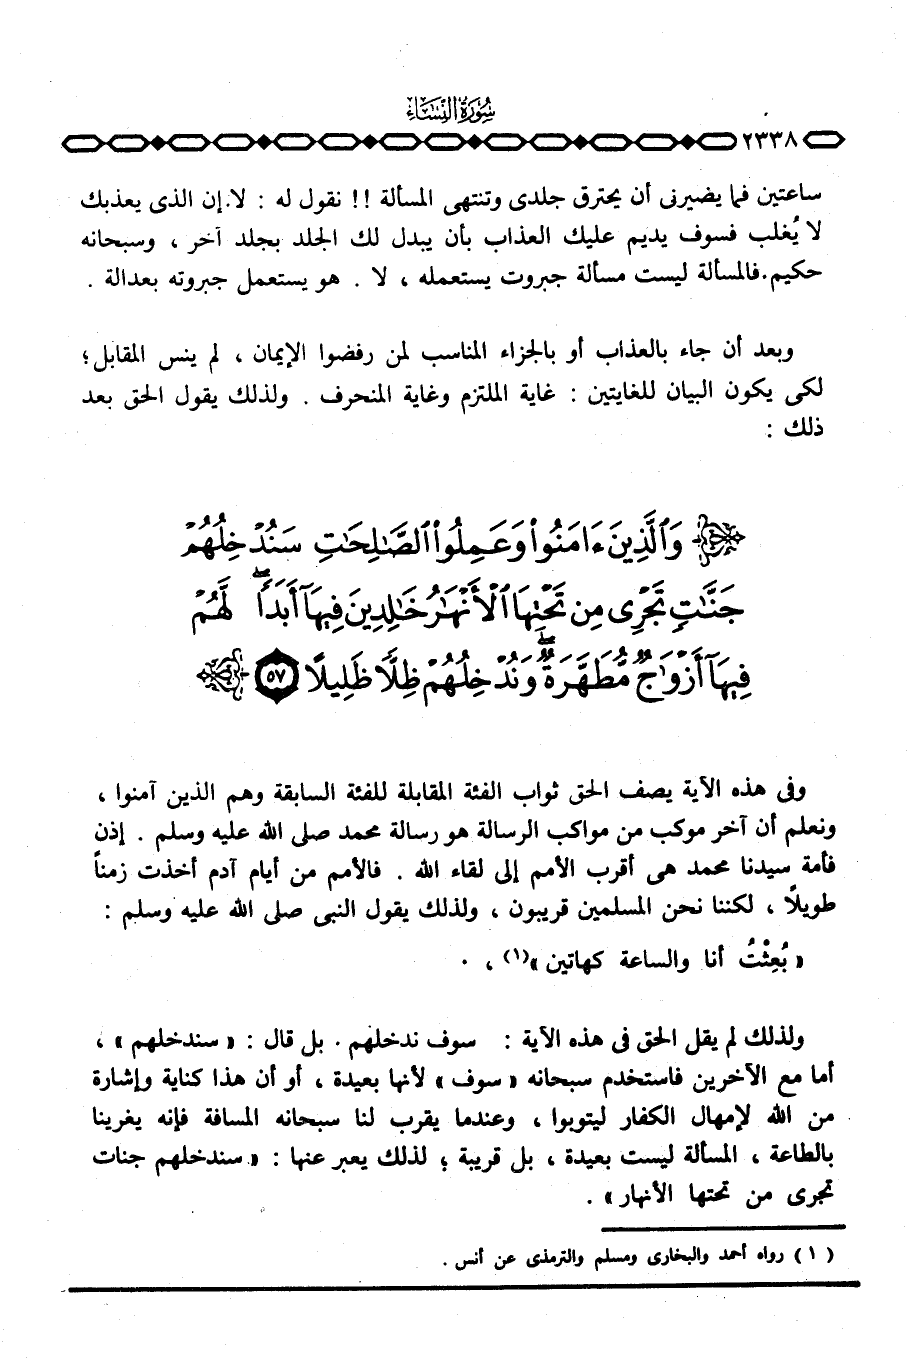 سورة النساء
٢٣٣٨
ساعتين فما يضيرنى أن يحترق جلدى وتنتهى المسألة !! نقول له : لا.إن الذى يعذبك
لا يُغلب فسوف يديم عليك العذاب بأن يبدل لك الجلد بجلد آخر ، وسبحانه
حكيم.فالمسألة ليست مسألة جبروت يستعمله ، لا . هو يستعمل جبروته بعدالة .
وبعد أن جاء بالعذاب أو بالجزاء المناسب لمن رفضوا الإيمان ، لم ينس المقابل؛
لكى يكون البيان للغايتين : غاية الملتزم وغاية المنحرف . ولذلك يقول الحق بعد
ذلك :
وَٱلَّذِينَ ءَامَنُوا۟ وَعَمِلُوا۟ ٱلصَّـٰلِحَـٰتِ سَنُدْخِلُهُمْ
جَنَّـٰتٍ تَجْرِى مِن تَحْتِهَا ٱلْأَنْهَـٰرُ خَـٰلِدِينَ فِيهَآ أَبَدًا ۖ لَّهُمْ
فِيهَآ أَزْوَٰجٌ مُّطَهَّرَةٌ ۖ وَنُدْخِلُهُمْ ظِلًّا ظَلِيلًا ٥٧
وفى هذه الآية يصف الحق ثواب الفئة المقابلة للفئة السابقة وهم الذين آمنوا ،
ونعلم أن آخر موكب من مواكب الرسالة هو رسالة محمد صلى الله عليه وسلم . إذن
فأمة سيدنا محمد هى أقرب الأمم إلى لقاء الله . فالأمم من أيام آدم أخذت زمناً
طويلاً ، لكننا نحن المسلمين قريبون ، ولذلك يقول النبى صلى الله عليه وسلم :
« بُعِثْتُ أنا والساعة كهاتين »(١) ، .
ولذلك لم يقل الحق فى هذه الآية : سوف ندخلهم . بل قال : « سندخلهم » ،
أما مع الآخرين فاستخدم سبحانه « سوف » لأنها بعيدة ، أو أن هذا كناية وإشارة
من الله لإمهال الكفار ليتوبوا ، وعندما يقرب لنا سبحانه المسافة فإنه يغرينا
بالطاعة ، المسألة ليست بعيدة ، بل قريبة ؛ لذلك يعبر عنها : « سندخلهم جنات
تجرى من تحتها الأنهار » .
( ١ ) رواه أحمد والبخارى ومسلم والترمذى عن أنس .